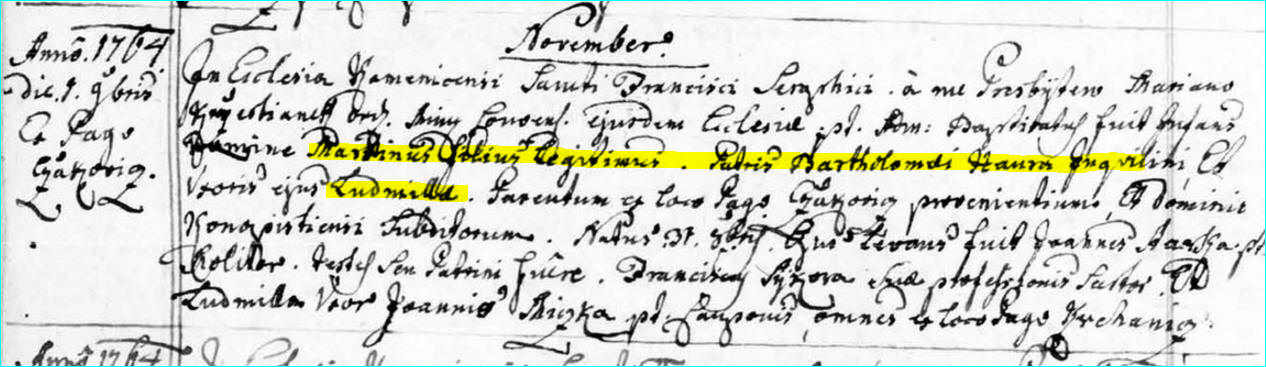 November.
Anno. 1764
die. 1. 9bris
Ex Pago
In Ecclesia Kamenicensi Sancti Francisci Seraphici. à me Presbytero Mariano
Ord. Min: Convent. Ejusdem Ecclesiae pt. Adm: Baptizatus fuit Infans
Nomine Martinus Filius Legitimus. Patris Bartholomaei Kaura Inquilini, Et
Uxoris ejus Ludmilla. Parentum ex loco Pago provenientium, Et Dominio
Konopistiensi Subditorum. Natus 31. 8bris. Ejus Levans fuit Joannes
Molitor. Testes seu Patrini fuere. Franciscus Sykora suae professionis Sartor. Et
Ludmilla Uxor Joannis pt. Cauponis, omnes ex loco Pago
Anno 1764